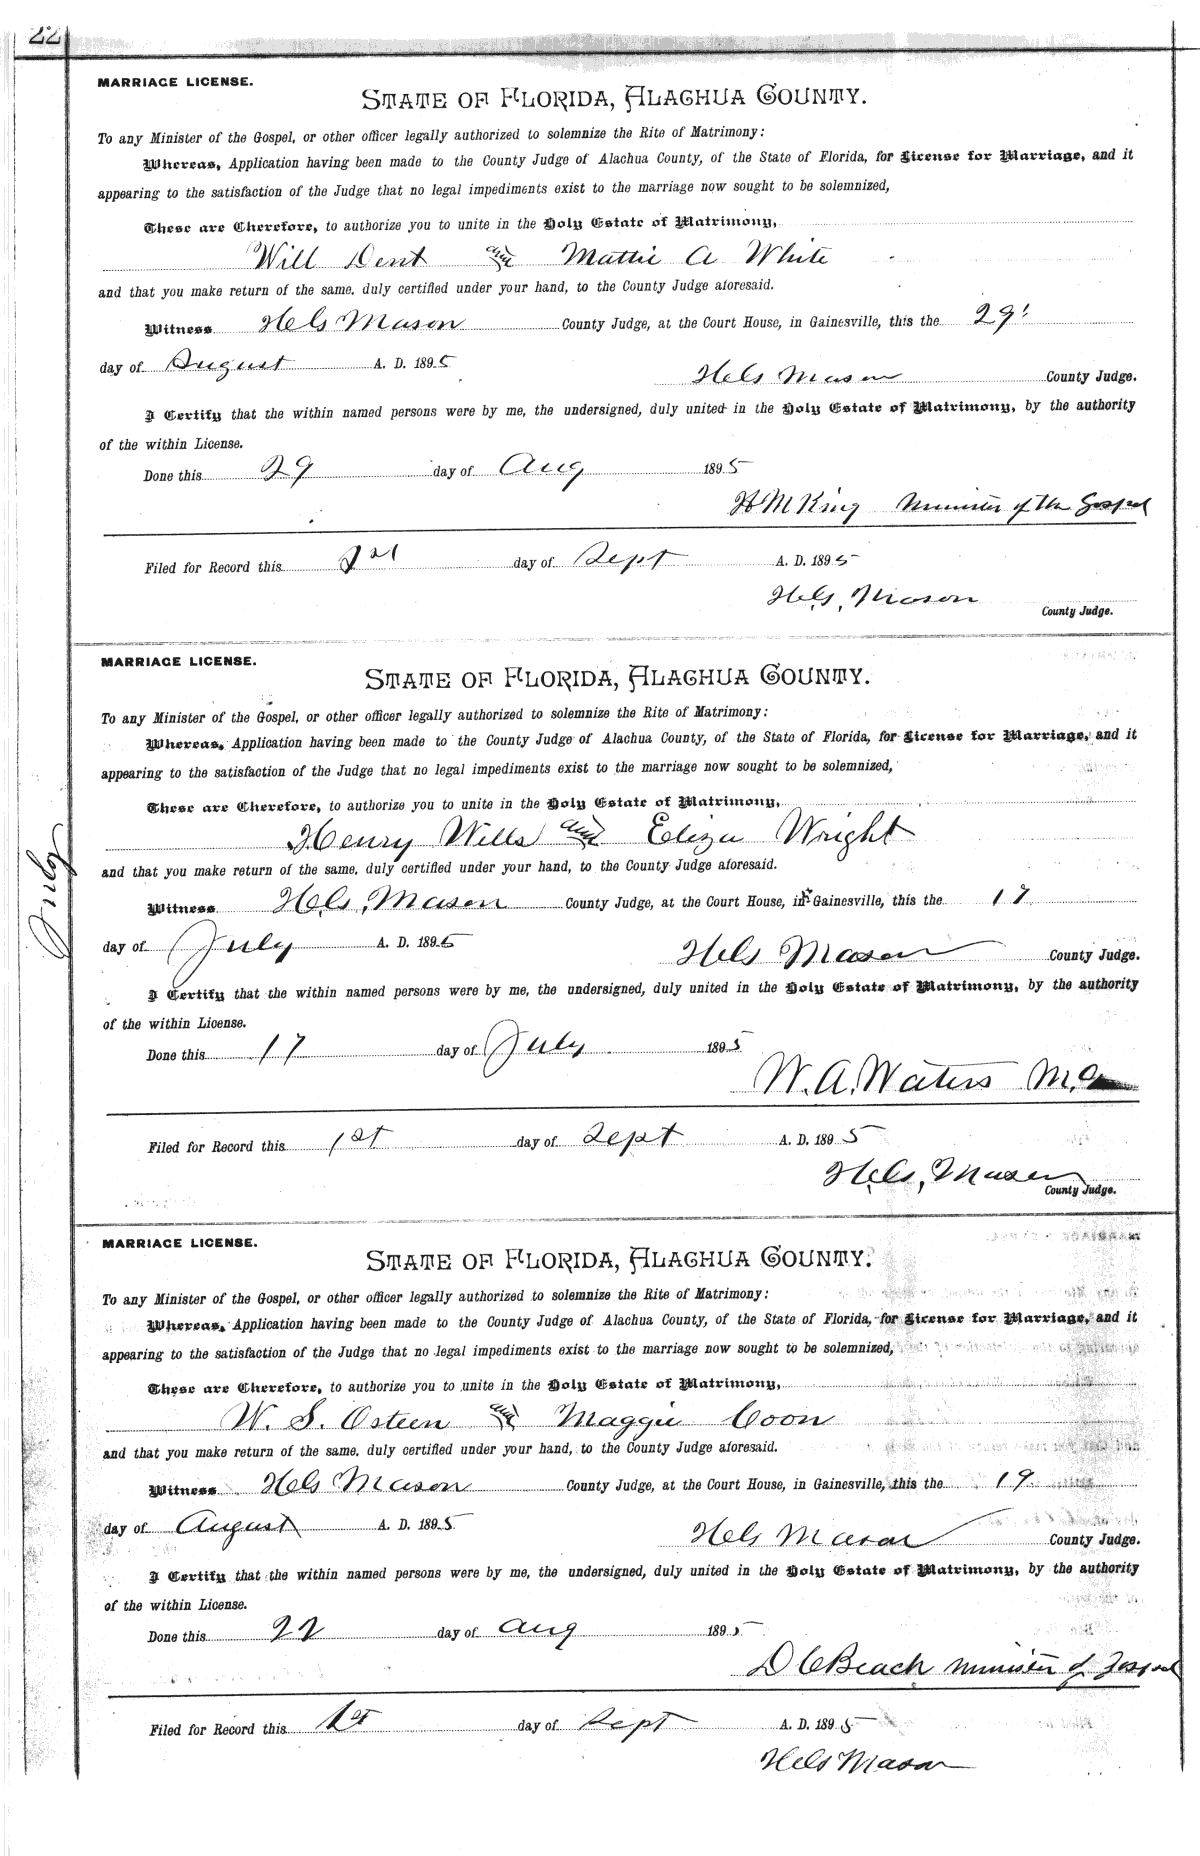 22
MARRIAGE LICENSE.
STATE OF FLORIDA, ALACHUA COUNTY.
To any Minister of the Gospel, or other officer legally authorized to solemnize the Rite of Matrimony:
Whereas, Application having been made to the County Judge of Alachua County, of the State of Florida, for License for Marriage, and it
appearing to the satisfaction of the Judge that no legal impediments exist to the marriage now sought to be solemnized,
These are Therefore, to authorize you to unite in the Holy Estate of Matrimony,
Will Dent and Mattie A White
and that you make return of the same, duly certified under your hand, to the County Judge aforesaid.
Witness H.C.S Mason County Judge, at the Court House, in Gainesville, this the 29
day of August A. D. 1895
H.C.S Mason County Judge.
I Certify that the within named persons were by me, the undersigned, duly united in the Holy Estate of Matrimony, by the authority
of the within License.
Done this 29 day of Aug 1895
H M King Minister of the Gospel
Filed for Record this 1st day of Sept A. D. 1895
H.C.S. Mason
County Judge.
MARRIAGE LICENSE.
STATE OF FLORIDA, ALACHUA COUNTY.
To any Minister of the Gospel, or other officer legally authorized to solemnize the Rite of Matrimony:
Whereas, Application having been made to the County Judge of Alachua County, of the State of Florida, for License for Marriage, and it
appearing to the satisfaction of the Judge that no legal impediments exist to the marriage now sought to be solemnized,
These are Therefore, to authorize you to unite in the Holy Estate of Matrimony,
Henry Wills and Eliza Wright
and that you make return of the same, duly certified under your hand, to the County Judge aforesaid.
Witness H.C.S. Mason County Judge, at the Court House, in Gainesville, this the 17
July
day of July A. D. 1895
H.C.S Mason County Judge.
I Certify that the within named persons were by me, the undersigned, duly united in the Holy Estate of Matrimony, by the authority
of the within License.
Done this 17 day of July 1895
W. A. Waters M.G
Filed for Record this 1st day of Sept A. D. 1895
H.C.S. Mason
County Judge.
MARRIAGE LICENSE.
STATE OF FLORIDA, ALACHUA COUNTY.
To any Minister of the Gospel, or other officer legally authorized to solemnize the Rite of Matrimony:
Whereas, Application having been made to the County Judge of Alachua County, of the State of Florida, for License for Marriage, and it
appearing to the satisfaction of the Judge that no legal impediments exist to the marriage now sought to be solemnized,
These are Therefore, to authorize you to unite in the Holy Estate of Matrimony,
W. S. Osteen and Maggie Coon
and that you make return of the same, duly certified under your hand, to the County Judge aforesaid.
Witness H.C.S Mason County Judge, at the Court House, in Gainesville, this the 19
day of August A. D. 1895
H.C.S Mason County Judge.
I Certify that the within named persons were by me, the undersigned, duly united in the Holy Estate of Matrimony, by the authority
of the within License.
Done this 22 day of Aug 1895
D C Beach Minister of Gospel
Filed for Record this 1st day of Sept A. D. 1895
H.C.S Mason